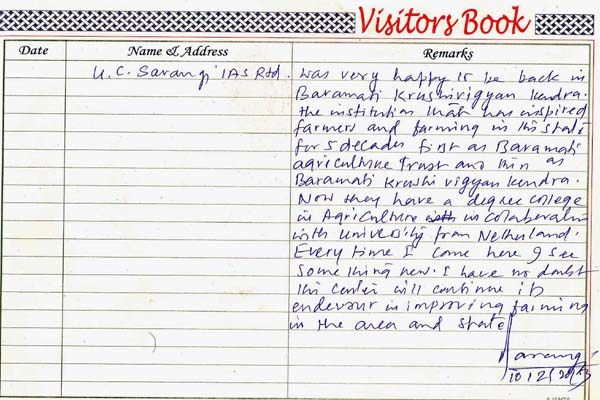 Visitors Book
Date Name & Address Remarks
U. C. Sarangi IAS Rtd. was very happy to be back in
Baramati Krushivigyan Kendra.
The institution that has inspired
farmers and farming in this state
for 5 decades first as Baramati
agriculture Trust and then as
Baramati Krushi vigyan Kendra.
Now they have a degree college
in Agriculture with in colaboration
with University from Netherland.
Every time I come here I see
something new. I have no doubt
this center will continue its
endevour in improving farming
in the area and state